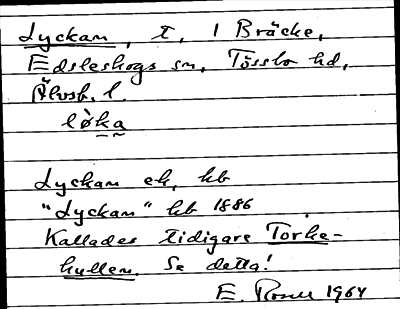 Lyckan, t, 1 Bräcke,
Edsleskogs sn, Tössbo hd,
Älvsb. l.
lø̀ka
Lyckan ek, kb
"Lyckan" kb 1886
Kallades tidigare Torke-
kullen. Se detta!
E. Rosell 1964